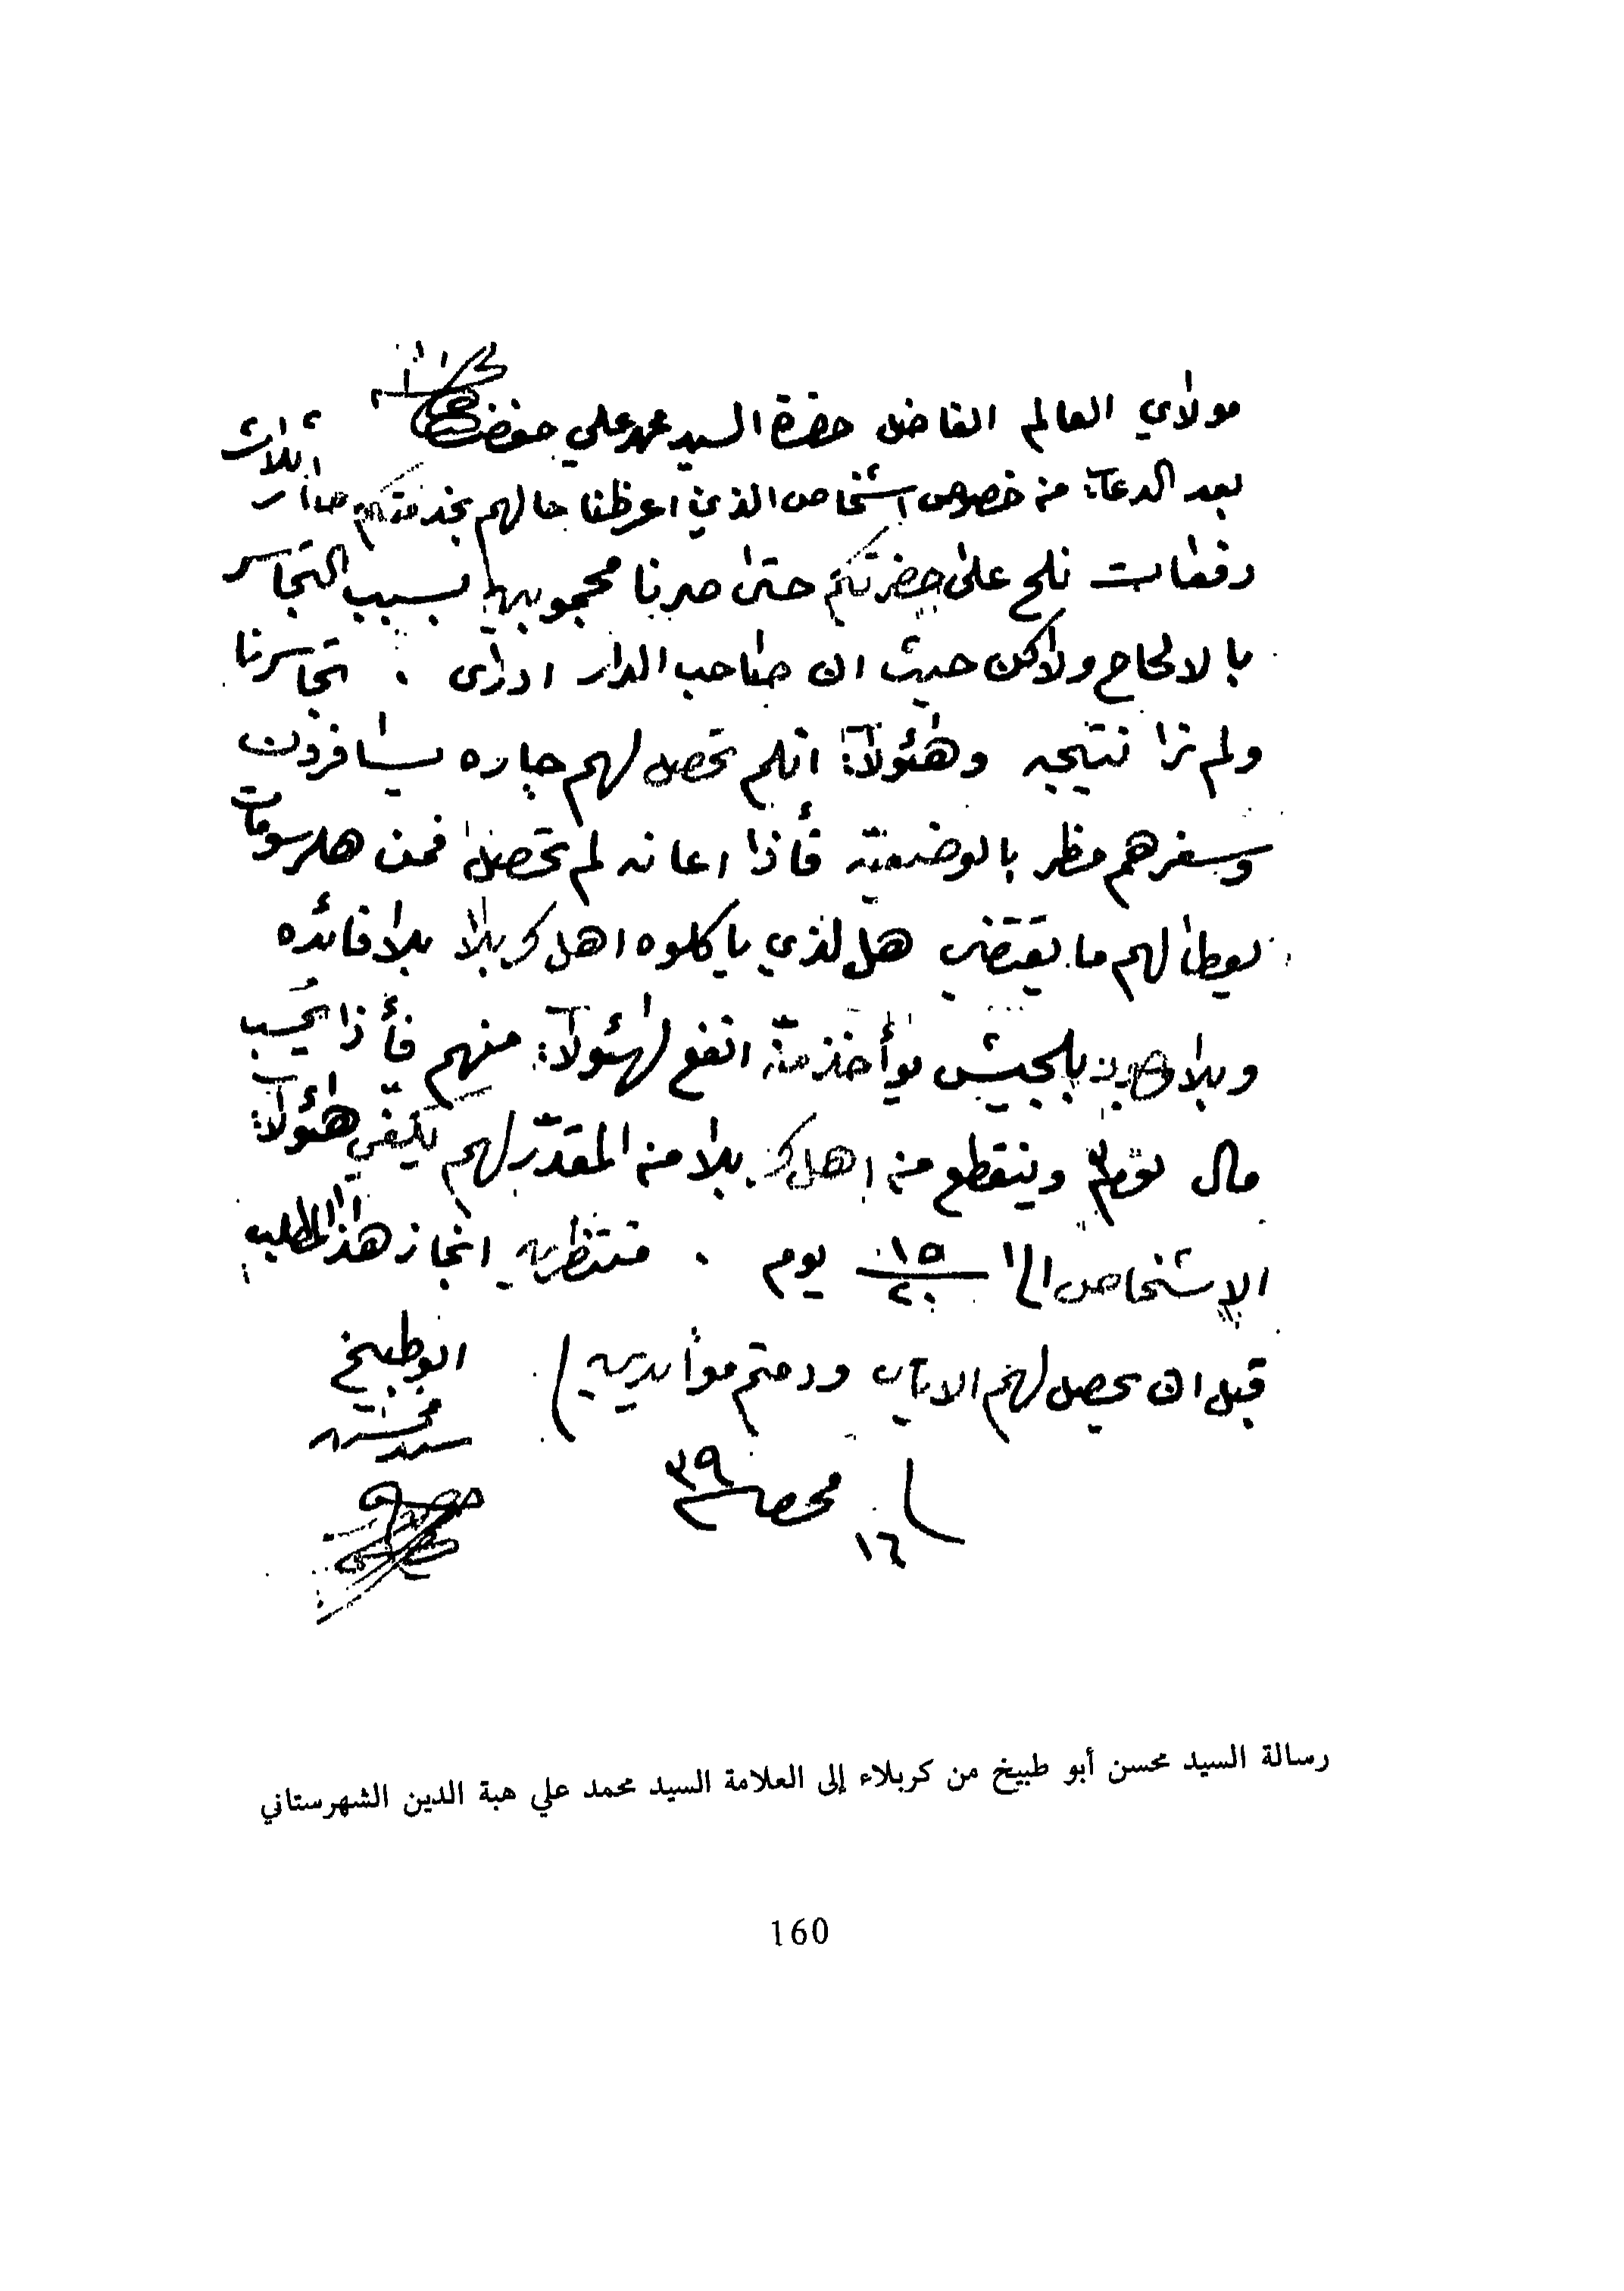 مولاي العالم الفاضل حضرة السيد محمد علي حفظه الله
بعد الدعآء من خصوص اشخاص الذي اعرظنا حالهم بخدمتكم صار اثلاث
دفعات نلح على حضرتكم حتى صرنا محجوبين بسبب التجاسر
بالالحاح ولاكن حيث ان صاحب الدار ادرى . تجاسرنا
ولم نرا نتيجه وهئولآء انلم تحصل لهم چاره يسافرون
وسفرهم مظر بالوضعيّه فأذا اعانه لم تحصل فمن هلرسومات
يعطا لهم ما يقتضي هل لذي ياكلوه اهل كربلا بلا فائده
وبلا بلجيش يوأخذ منّه انفع لهئولآء منهم فأذا يحسب
مال وينقطع من اهل كربلا من المقدّر لهم يكفّي هئولآء
الاشخاص الا ١٥/٢٠ يوم . منتظرين انجاز هذا المطلب
قبل ان يحصل لهم الاياب ودمتم موأيدين
ابو طبيخ
سيد محسن
١٦ محرم ٣٩
رسالة السيد محسن أبو طبيخ من كربلاء إلى العلامة السيد محمد علي هبة الدين الشهرستاني
160